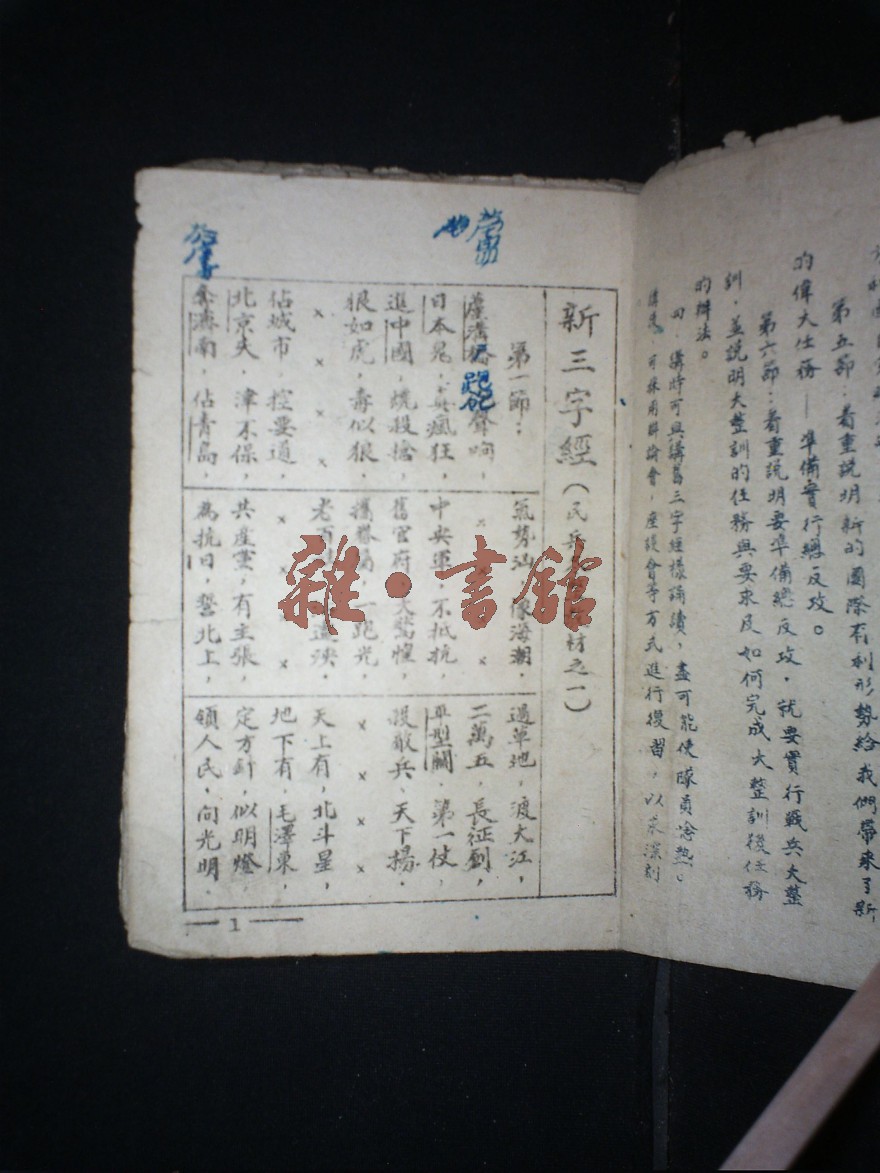 第五節：着重說明新的國際有利形勢給我們帶來了新
的偉大任務——準備實行總反攻。
第六節：着重說明要準備總反攻，就要實行戰兵大整
訓，並說明大整訓的任務與要求及如何完成大整訓後任務
的辦法。
四、講時可與講舊三字經樣誦讀，盡可能使隊員唸熟。
可採用辯論會，座談會等方式進行復習，以求深刻
新三字經（民兵材之一）
第一節：
蘆溝橋，跑聲响，
日本鬼，真瘋狂，
進中國，燒殺搶，
狠如虎，毒似狼，
× × × ×
佔城市，控要道，
北京失，津不保，
奪濟南，佔青島，
氣勢汹，像海潮，
× × ×
中央軍，不抵抗，
舊官府，大驚惶，
一跑光，
老百遭殃。
× × ×
共產黨，有主張，
為抗日，誓北上，
過草地，渡大江，
二萬五，長征創，
平型關，第一仗，
殺敵兵，天下揚。
× × × ×
天上有，北斗星，
地下有，毛澤東，
定方針，似明燈，
領人民，向光明。
1
雜·書館